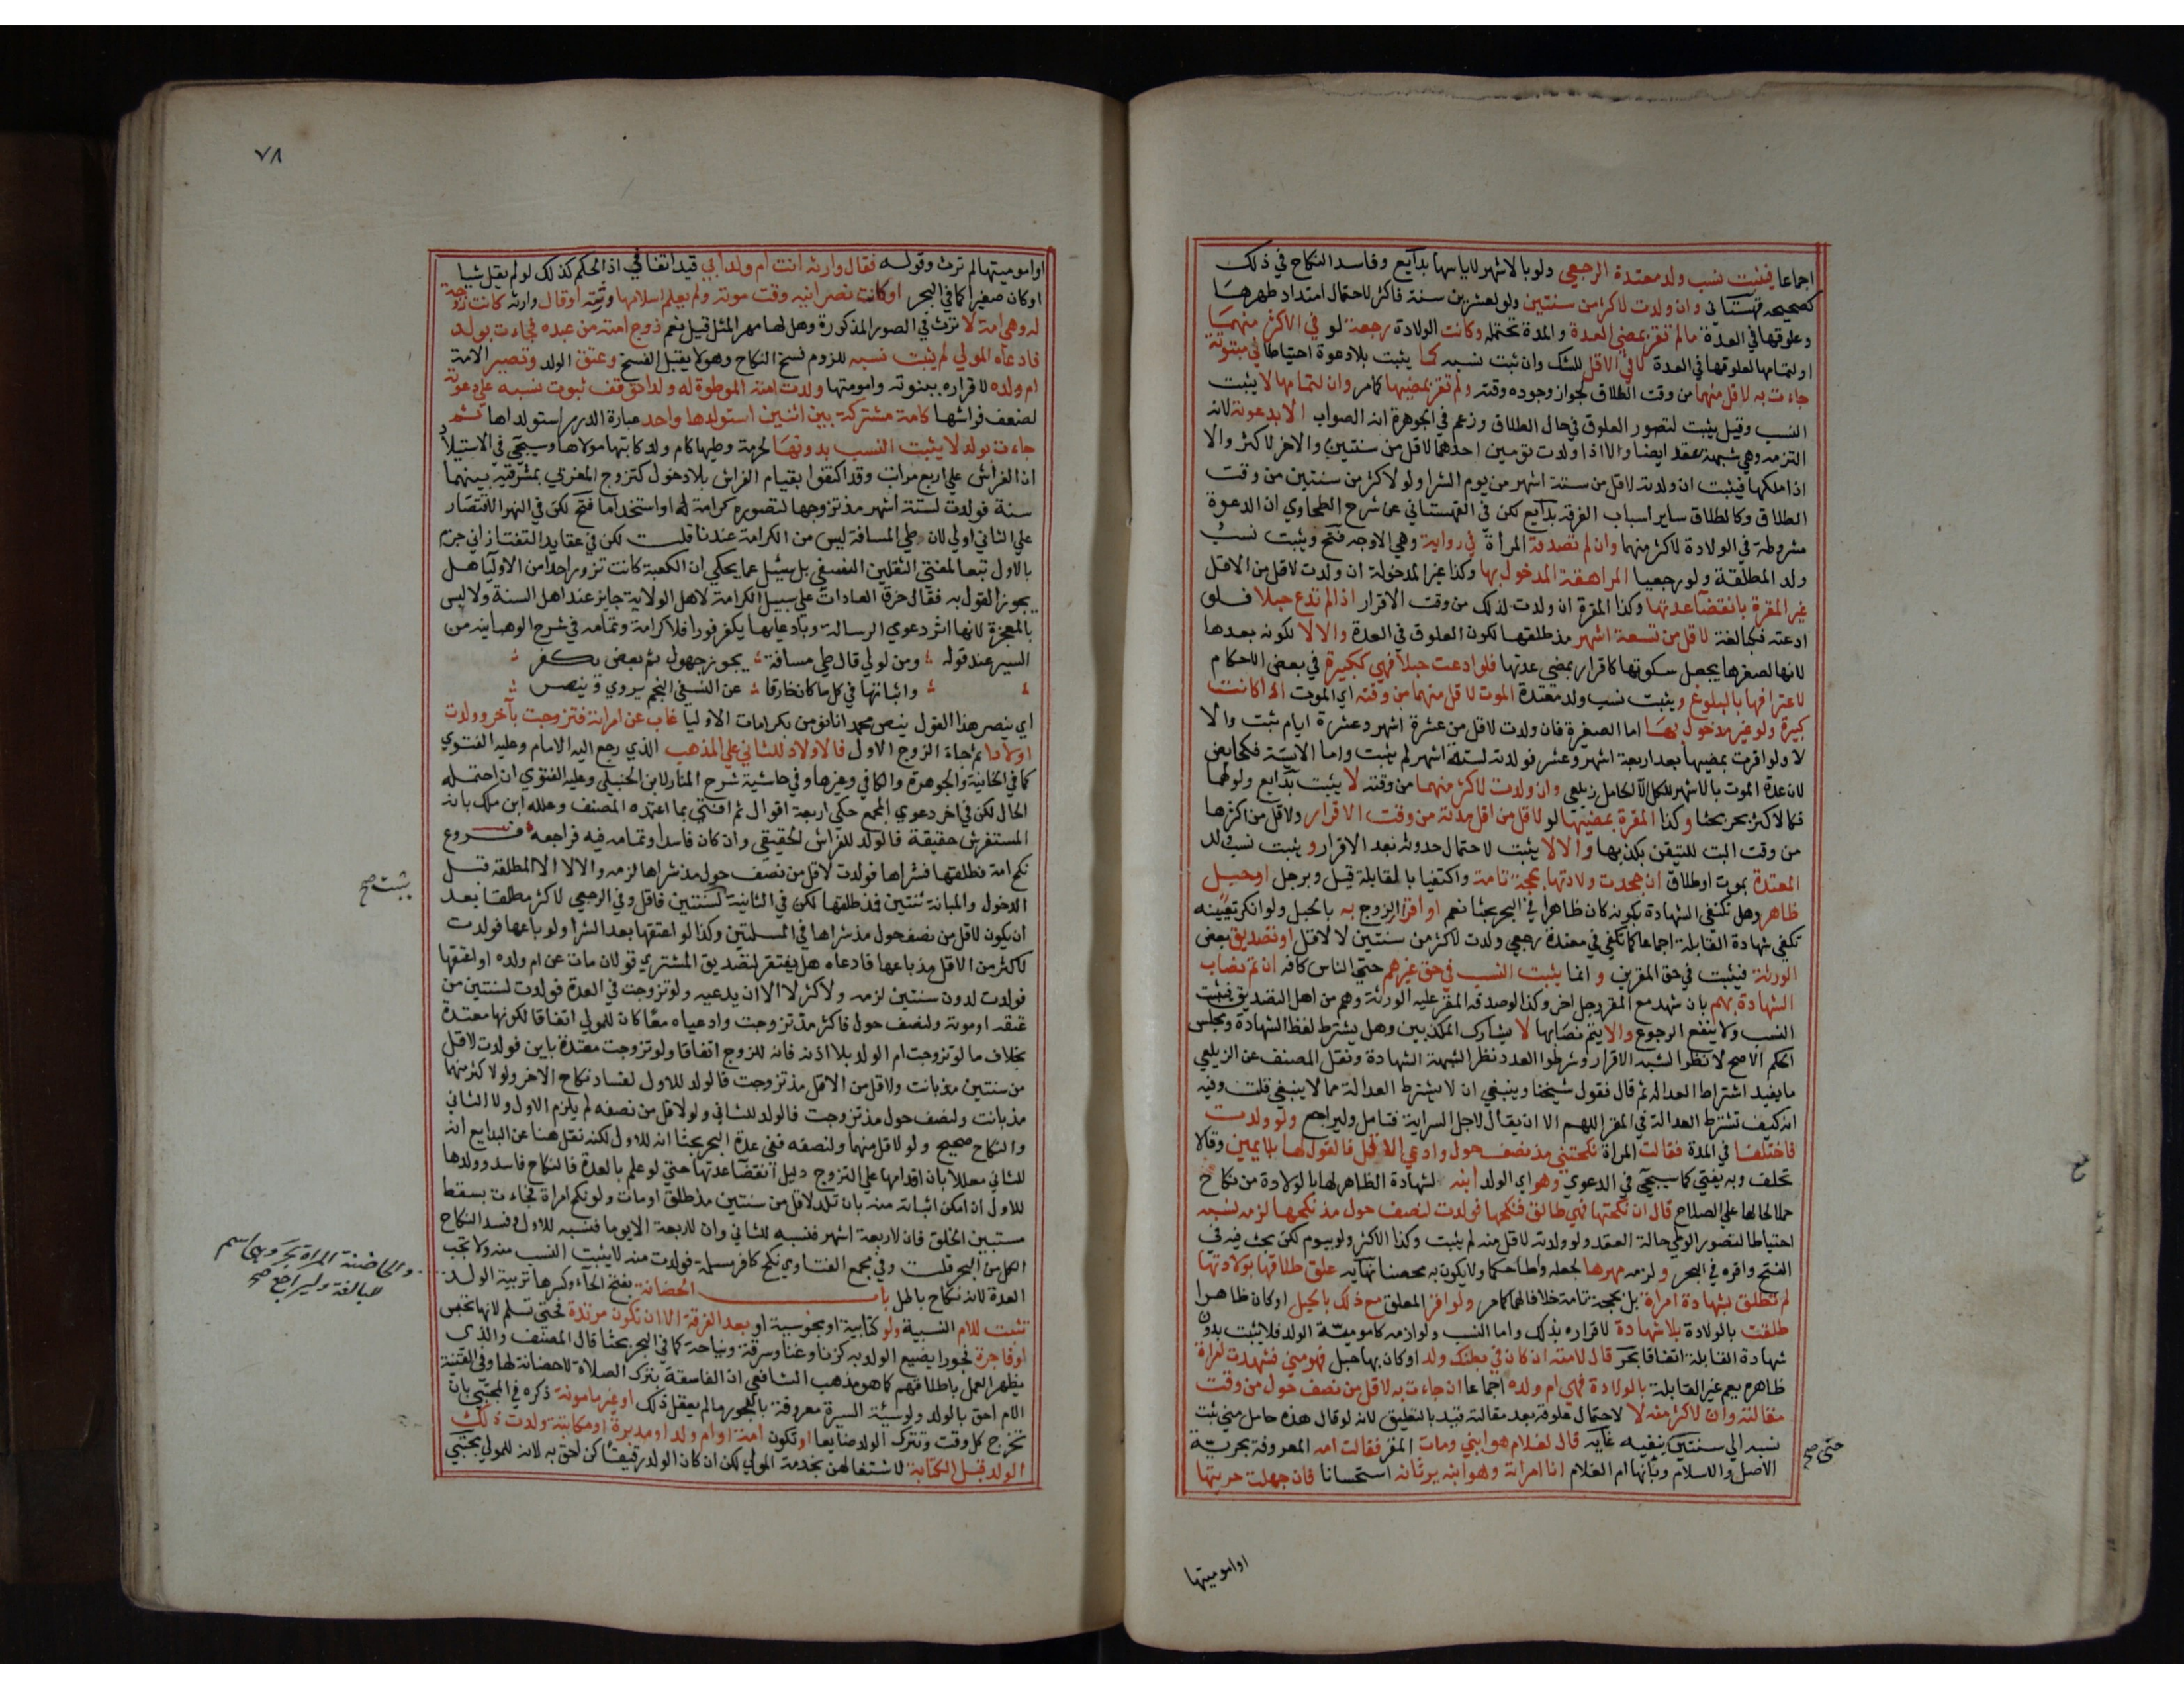 اجماعا فيثبت نسب ولد معتدة الرجعي ولو بالاشهر لاياسها بدايع وفاسد النكاح في ذلك
كصحيحه قهستاني وان ولدت لاكثر من سنتين ولو لعشرين سنة فاكثر لاحتمال امتداد طهرها
وعلوقها في العدة مالم تقر بمضي العدة والمدة تحتمله وكانت الولادة رجعة لو في الاكثر منهما
او لتمامها لعلوقها في العدة لا في الاقل للشك وان ثبت نسبه كما يثبت بلا دعوة احتياطا في مبتوتة
جاءت به لاقل منهما من وقت الطلاق لجواز وجوده وقته ولم تقر بمضيها كما مر وان لتمامها لا يثبت
النسب وقيل يثبت لتصور العلوق في حال الطلاق وزعم في الجوهرة انه الصواب الا بدعوته لانه
التزمه وهي شبهة عقد ايضا والا اذا ولدت تومين احدهما لاقل من سنتين والاخر لاكثر والا
اذا ملكها فيثبت ان ولدته لاقل من ستة اشهر من يوم الشرا ولو لاكثر من سنتين من وقت
الطلاق وكالطلاق ساير اسباب الفرقة بدايع لكن في القهستاني عن شرح الطحاوي ان الدعوة
مشروطة في الولادة لاكثر منهما وان لم تصدقه المراة في رواية وهي الاوجه فتح ويثبت نسب
ولد المطلقة ولو رجعيا المراهقة المدخول بها وكذا غير المدخولة ان ولدت لاقل من الاقل
غير المقرة بانقضا عدتها وكذا المقرة ان ولدت لذلك من وقت الاقرار اذا لم تدع حبلا فلو
ادعته فكبالغة لاقل من تسعة اشهر مذ طلقها لكون العلوق في العدة والا لا لكونه بعدها
لانها لصغرها يجعل سكوتها كاقرار بمضي عدتها فلو ادعت حبلا فهي ككبيرة في بعض الاحكام
لاعترافها بالبلوغ ويثبت نسب ولد معتدة الموت لاقل منهما من وقته اي الموت اذا كانت
كبيرة ولو غير مدخول بها اما الصغيرة فان ولدت لاقل من عشرة اشهر وعشرة ايام ثبت والا
لا ولو اقرت بمضيها بعد اربعة اشهر وعشر فولدته لستة اشهر لم يثبت واما الايسة فكحايض
لان عدة الموت بالاشهر للكل الا الحامل زيلعي وان ولدت لاكثر منهما من وقته لا يثبت بدايع ولو لهما
فكالاكثر بحر بحثا وكذا المقرة بمضيها لو لاقل من اقل مدته من وقت الاقرار ولاقل من اكثرها
من وقت البت للتيقن بكذبها والا لا يثبت لاحتمال حدوثه بعد الاقرار ويثبت نسب ولد
المعتدة بموت او طلاق ان جحدت ولادتها بحجة تامة واكتفيا بالقابلة قيل وبرجل او حبل
ظاهر وهل تكفي الشهادة بكونه كان ظاهرا في البحر بحثا نعم او اقرار الزوج به بالحبل ولو انكر تعيينه
تكفي شهادة القابلة اجماعا كما تكفي في معتدة رجعي ولدت لاكثر من سنتين لا لاقل او تصديق بعض
الورثة فيثبت في حق المقرين و انما يثبت النسب في حق غيرهم حتى الناس كافة ان تم نصاب
الشهادة بهم بان شهد مع المقر رجل اخر وكذا لو صدقه المقر عليه الورثة وهم من اهل التصديق فيثبت
النسب ولا ينفع الرجوع والا يتم نصابها لا يشارك المكذبين وهل يشترط لفظ الشهادة ومجلس
الحكم الاصح لا نظرا لشبه الاقرار وشرطوا العدد نظرا لشبهة الشهادة ونقل المصنف عن الزيلعي
ما يفيد اشتراط العدالة ثم قال فقول شيخنا وينبغي ان لا يشترط العدالة مما لا ينبغي قلت وفيه
انه كيف تشترط العدالة في المقر اللهم الا ان يقال لاجل السراية فتامل وليراجع ولو ولدت
فاختلفا في المدة فقالت المراة نكحتني مذ نصف حول وادعى الاقل فالقول لها بلا يمين وقالا
تحلف وبه يفتى كما سيجي في الدعوى وهو اي الولد ابنه لشهادة الظاهر لها بالولادة من نكاح
حملا لحالها على الصلاح قال ان نكحتها فهي طالق فنكحها فولدت لنصف حول مذ نكحها لزمه نسبه
احتياطا لتصور الوطي حالة العقد ولو ولدته لاقل منه لم يثبت وكذا الاكثر ولو بيوم لكن بحث فيه في
الفتح واقره في البحر و لزمه مهرها بجعله واطا حكما ولا يكون به محصنا نهايه علق طلاقها بولادتها
لم تطلق بشهادة امراة بل بحجة تامة خلافا لهما كما مر ولو اقر المعلق مع ذلك بالحبل او كان ظاهرا
طلقت بالولادة بلا شهادة لاقراره بذلك واما النسب ولوازمه كامومية الولد فلا يثبت بدون
شهادة القابلة اتفاقا بحر قال لامته ان كان في بطنك ولد او كان بها حبل فهو مني فشهدت امراة
ظاهره يعم غير القابلة بالولادة فهي ام ولده اجماعا ان جاءت به لاقل من نصف حول من وقت
مقالته وان لاكثر منه لا لاحتمال علوقه بعد مقالته قيد بالتعليق لانه لو قال هذه حامل مني ثبت
نسبه الى سنتين ينفيه غايه قال لغلام هو ابني ومات المقر فقالت امه المعروفة بحرية
الاصل والاسلام وبانها ام الغلام انا امراته وهو ابنه يرثانه استحسانا فان جهلت حريتها
حتى صح
اواموميتها
٧٨
او اموميتها لم ترث وقوله فقال وارثه انت ام ولد ابي قيد اتفاقي اذ الحكم كذلك لو لم يقل شيا
او كان صغيرا كما في البحر او كانت نصرانية وقت موته ولم يعلم اسلامها وقته او قال وارثه كانت زوجة
له وهي امة لا ترث في الصور المذكورة وهل لها مهر المثل قيل نعم زوج امته من عبده فجاءت بولد
فادعاه المولي لم يثبت نسبه للزوم فسخ النكاح وهو لا يقبل الفسخ وعتق الولد وتصير الامة
ام ولده لاقراره ببنوته واموميتها ولدت امته الموطوءة له ولدا توقف ثبوت نسبه على دعوته
لضعف فراشها كامة مشتركة بين اثنين استولدها واحد عبارة الدرر استولداها ثم
جاءت بولد لا يثبت النسب بدونها لحرمة وطيها كام ولد كاتبها مولاها وسيجي في الاستيلاد
ان الفراش على اربع مراتب وقد اكتفوا بقيام الفراش بلا دخول كتزوج المغربي بمشرقية بينهما
سنة فولدت لستة اشهر مذ تزوجها لتصوره كرامة له او استخداما فتح لكن في النهر الاقتصار
علي الثاني اولى لان طي المسافة ليس من الكرامة عندنا قلت لكن في عقايد التفتازاني جزم
بالاول تبعا لمفتي الثقلين النسفي بل سئل عما يحكى ان الكعبة كانت تزور احدا من الاوليا هل
يجوز القول به فقال خرق العادات على سبيل الكرامة لاهل الولاية جايز عند اهل السنة ولا لبس
بالمعجزة لانها اثر دعوي الرسالة وبادعايها يكفر فورا فلا كرامة وتمامه في شرح الوهبانيه من
السير عند قوله ؛ ومن لولي قال طي مسافة ؛ يجوز جهول ثم بعض يكفر ؛
؛ واثباتها في كل ما كان خارقا ؛ عن النسفي النجم يروى وينصر ؛
اي ينصر هذا القول بنص محمد انا نومن بكرامات الاوليا غاب عن امراته فتزوجت بآخر وولدت
اولادا ثم جاء الزوج الاول فالاولاد للثاني على المذهب الذي رجع اليه الامام وعليه الفتوي
كما في الخانية والجوهرة والكافي وغيرها وفي حاشية شرح المنار لابن الحنبلي وعليه الفتوي ان احتمله
الحال لكن في اخر دعوي المجمع حكى اربعة اقوال ثم افتى بما اعتمده المصنف وعلله ابن ملك بانه
المستفرش حقيقة فالولد للفراش الحقيقي وان كان فاسدا وتمامه فيه فراجعه فروع
نكح امة فطلقها فشراها فولدت لاقل من نصف حول مذ شراها لزمه والا لا الا المطلقة قبل
الدخول والمبانة بثنتين فمذ طلقها لكن في الثانية لسنتين فاقل وفي الرجعي لاكثر مطلقا بعد
ان يكون لاقل من نصف حول مذ شراها في المسلتين وكذا لو اعتقها بعد الشرا ولو باعها فولدت
لاكثر من الاقل مذ باعها فادعاه هل يفتقر لتصديق المشتري قولان مات عن ام ولده او اعتقها
فولدت لدون سنتين لزمه ولاكثر لا الا ان يدعيه ولو تزوجت في العدة فولدت لسنتين من
عتقه او موته ولنصف حول فاكثر مذ تزوجت وادعياه معا كان للمولى اتفاقا لكونها معتدة
بخلاف ما لو تزوجت ام الولد بلا اذنه فانه للزوج اتفاقا ولو تزوجت معتدة باين فولدت لاقل
من سنتين مذ بانت ولاقل من الاقل مذ تزوجت فالولد للاول لفساد نكاح الاخر ولو لاكثر منهما
مذ بانت ولنصف حول مذ تزوجت فالولد للثاني ولو لاقل من نصفه لم يلزم الاول ولا الثاني
والنكاح صحيح ولو لاقل منهما ولنصفه ففي عدة البحر بحثا انه للاول لكنه نقل هنا عن البدايع انه
للثاني معللا بان اقدامها على التزوج دليل انقضا عدتها حتى لو علم بالعدة فالنكاح فاسد وولدها
للاول ان امكن اثباته منه بان تلد لاقل من سنتين مذ طلق او مات ولو نكح امراة فجاءت بسقط
مستبين الخلق فان لاربعة اشهر فنسبه للثاني وان لاربعة الا يوما فنسبه للاول وفسد النكاح
الكل من البحر قلت وفي مجمع الفتاوي نكح كافر مسلمة فولدت منه لا يثبت النسب منه ولا تجب
العدة لانه نكاح باطل باب الحضانة بفتح الحاء وكسرها تربية الولد
تثبت للام النسبية ولو كتابية او مجوسية او بعد الفرقة الا ان تكون مرتدة فحتى تسلم لانها تحبس
او فاجرة فجورا يضيع الولد به كزنا وغنا وسرقة ونياحة كما في البحر بحثا قال المصنف والذي
يظهر العمل باطلاقهم كما هو مذهب الشافعي ان الفاسقة بترك الصلاة لا حضانة لها وفي القنية
الام احق بالولد ولو سيئة السيرة معروفة بالفجور مالم يعقل ذلك او غير مامونة ذكره في المجتبى بان
تخرج كل وقت وتترك الولد ضايعا او تكون امة او ام ولد او مدبرة او مكاتبة ولدت ذلك
الولد قبل الكتابة لاشتغالهن بخدمة المولي لكن ان كان الولد رقيقا كن احق به لانه للمولي مجتبى
يثبت صح
والحاضنة المراة بحر وهي اسم
للبالغة وليراجع صح